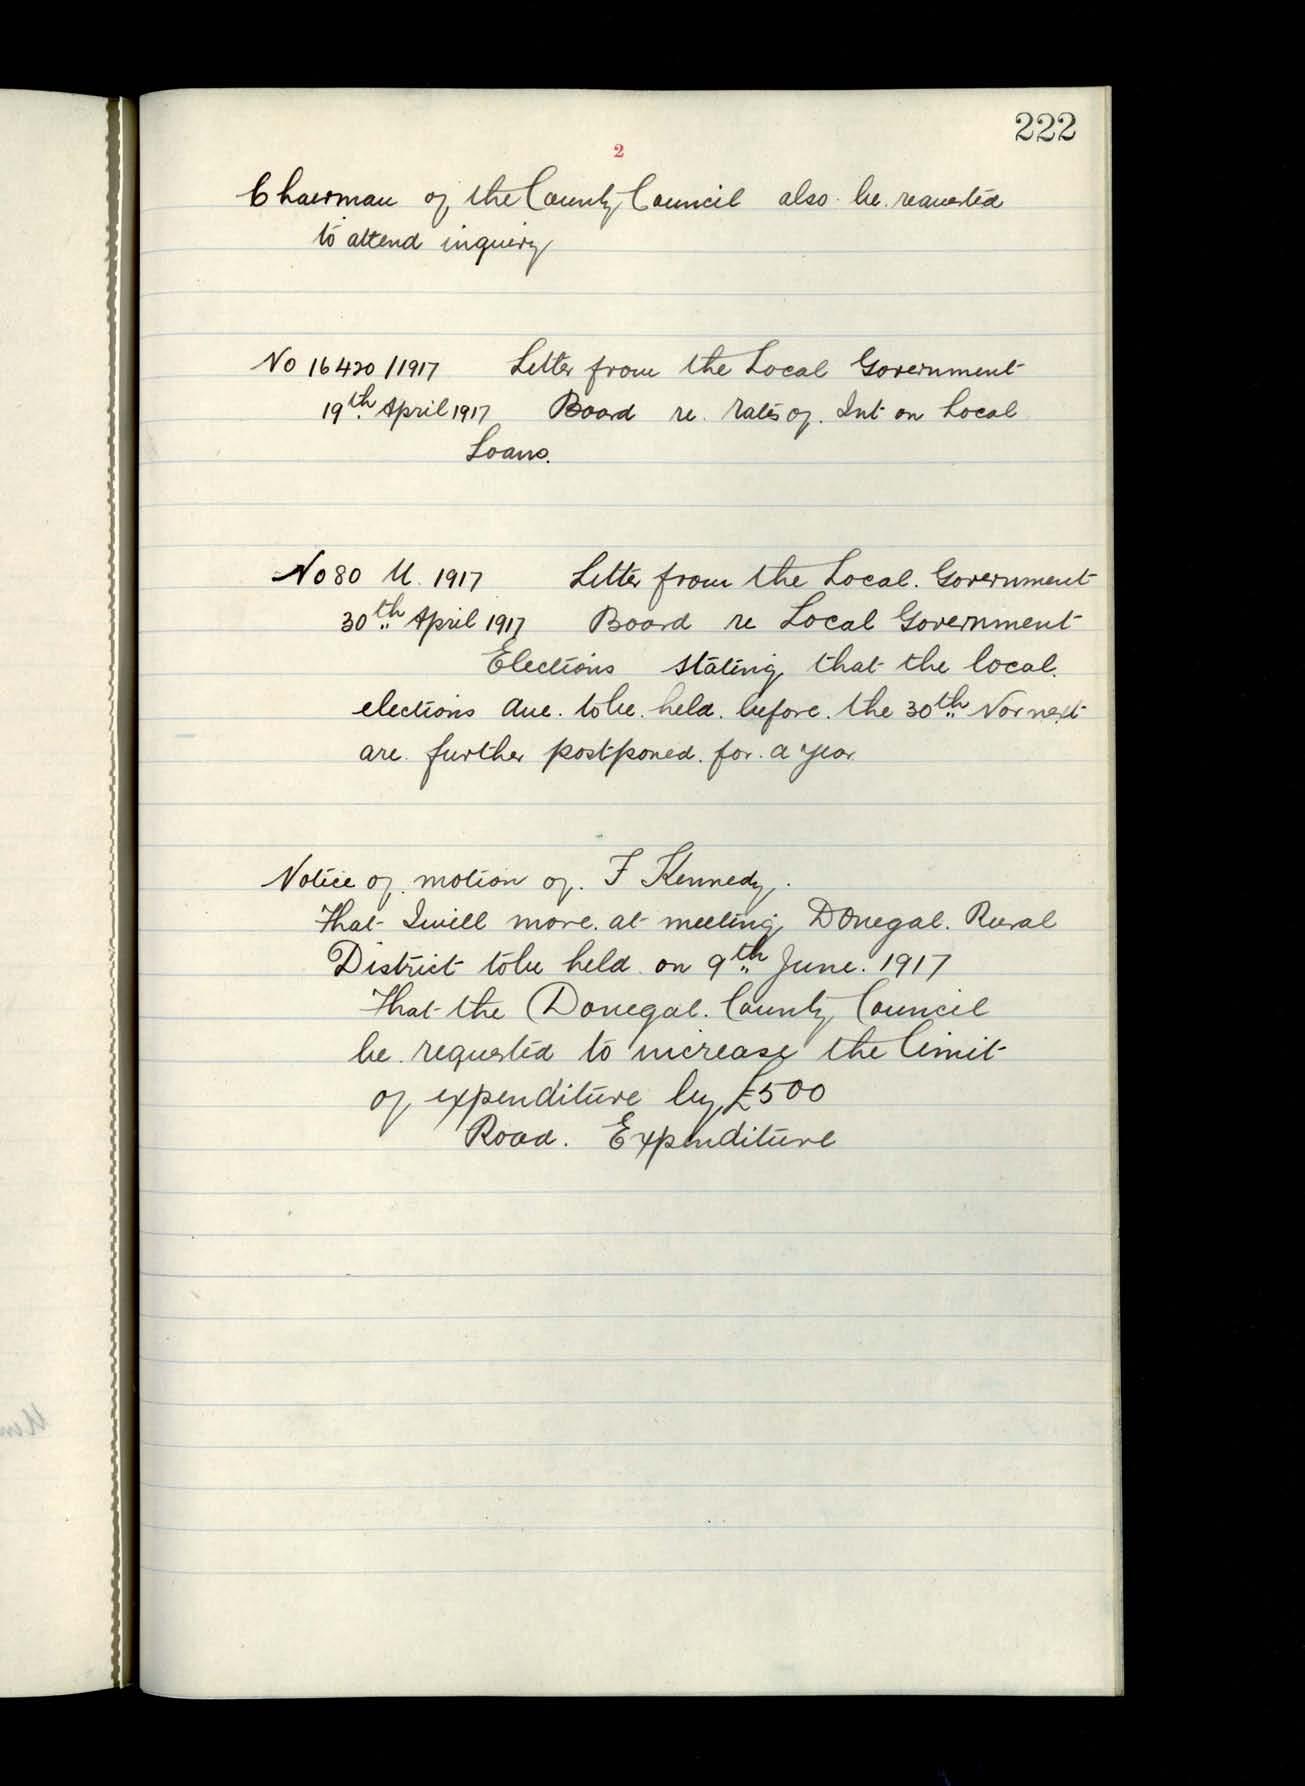 222
2
Chairman of the County Council also be requested
to attend inquiry
No 16420/1917 Letter from the Local Government
19th April 1917 Board re. rates of. Int on Local
Loans.
No 80 M. 1917 Letter from the Local. Government
30th April 1917 Board re Local Government
Elections stating that the local.
elections due. to be. held. before. the 30th Nov next
are. further postponed. for. a year
Notice of. motion of. F Kennedy.
That I will move. at meeting Donegal. Rural
District to be held on 9th June. 1917
That the Donegal. County Council
be. requested to increase the limit
of expenditure by £500
Road. Expenditure